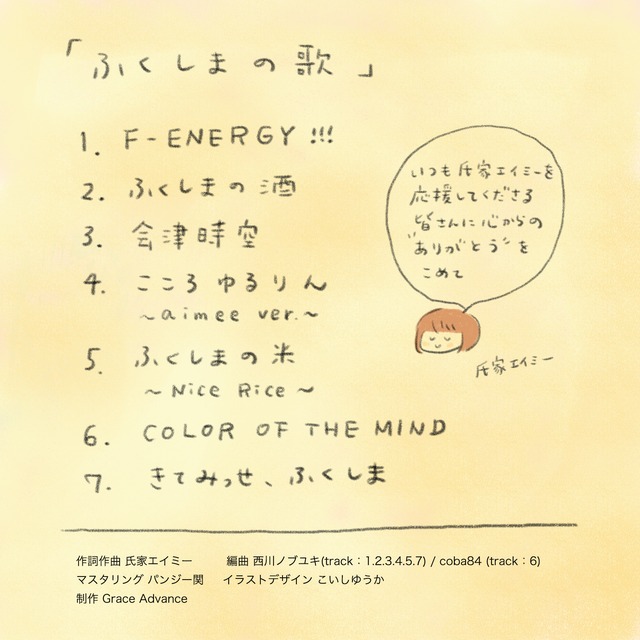 「ふくしまの歌」
1. F-ENERGY !!!
2. ふくしまの酒
3. 会津時空
4. こころゆるりん
~aimee ver.~
5. ふくしまの米
~Nice Rice~
6. COLOR OF THE MIND
7. きてみっせ、ふくしま
いつも氏家エイミーを
応援してくださる
皆さんに心からの
"ありがとう"を
こめて
氏家エイミー
作詞作曲 氏家エイミー 編曲 西川ノブユキ(track：1.2.3.4.5.7) / coba84 (track：6)
マスタリング パンジー関 イラストデザイン こいしゆうか
制作 Grace Advance